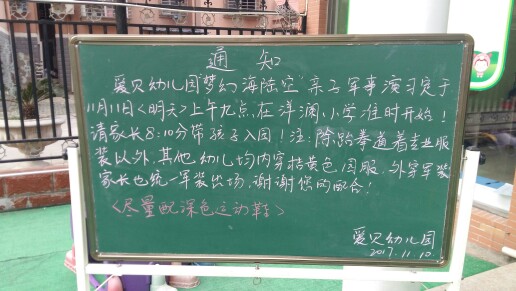 通知
爱贝幼儿园"梦幻海陆空"亲子军事演习定于
11月11日<明天>上午九点,在洋澜小学准时开始!
请家长8:10分带孩子入园!注:除跆拳道着专业服
装以外,其他幼儿均内穿桔黄色园服,外穿军装
家长也统一军装出场,谢谢您的配合!
<尽量配深色运动鞋>
爱贝幼儿园
2017.11.10.